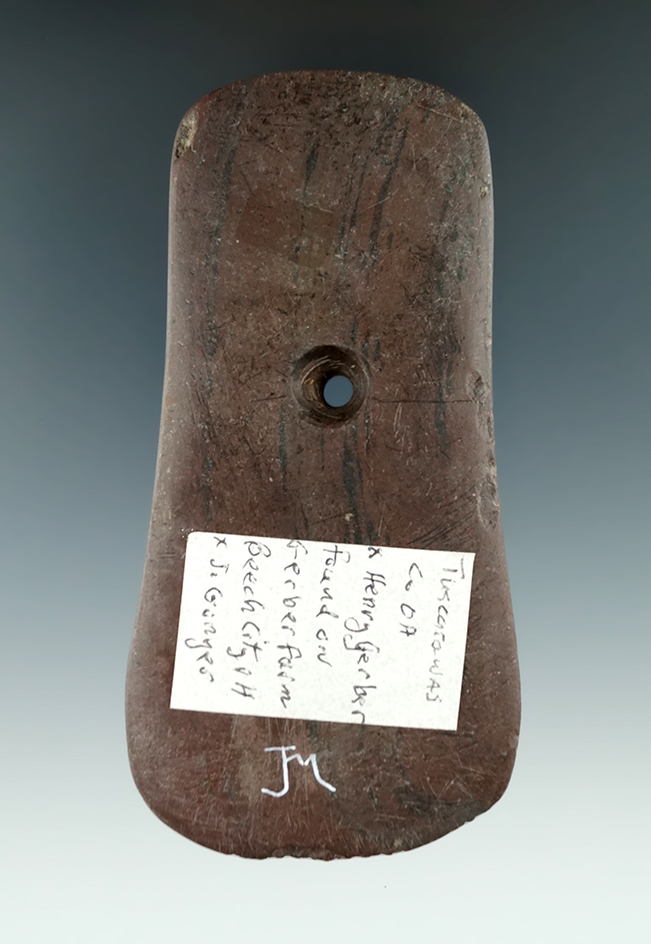 Tuscarawas
Co OH
x Henry Gerber
found on
Gerber farm
Beech City OH
x J.
JM